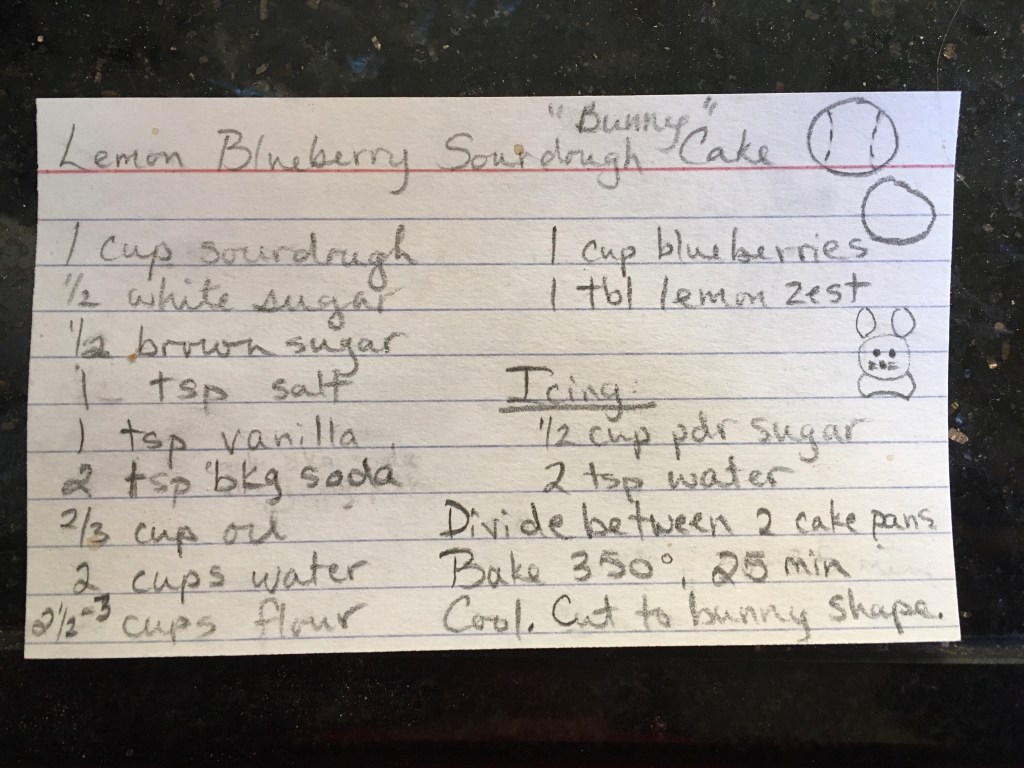 "Bunny"
Lemon Blueberry Sourdough Cake
1 cup sourdough
1/2 white sugar
1/2 brown sugar
1 tsp salt
1 tsp vanilla
2 tsp bkg soda
2/3 cup oil
2 cups water
2 1/2-3 cups flour
1 cup blueberries
1 tbl lemon zest
Icing:
1/2 cup pdr sugar
2 tsp water
Divide between 2 cake pans
Bake 350°, 25 min
Cool. Cut to bunny shape.